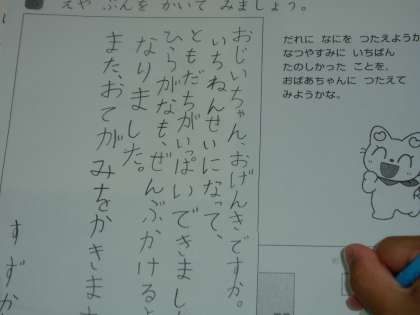 えや ぶんを かいて みましょう。
だれに なにを つたえようか
なつやすみに いちばん
たのしかった ことを、
おばあちゃんに つたえて
みようかな。
おじいちゃん、おげんきですか。
いちねんせいになって、
ともだちがいっぱいできまし
ひらがなも、ぜんぶかけると
なりました。
また、おてがみをかきま
すずか